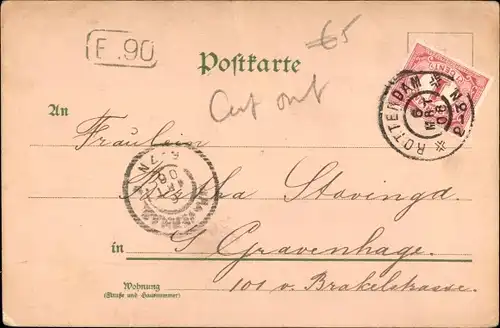 F.90
€5
Postkarte
Cut out
An
Fräulein
ROTTERDAM * No 2 *
6 MRT 06
'S GRAVENHAGE
Stavinga.
in S Gravenhage.
Wohnung
(Straße und Hausnummer)
101 v. Brakelstrasse.